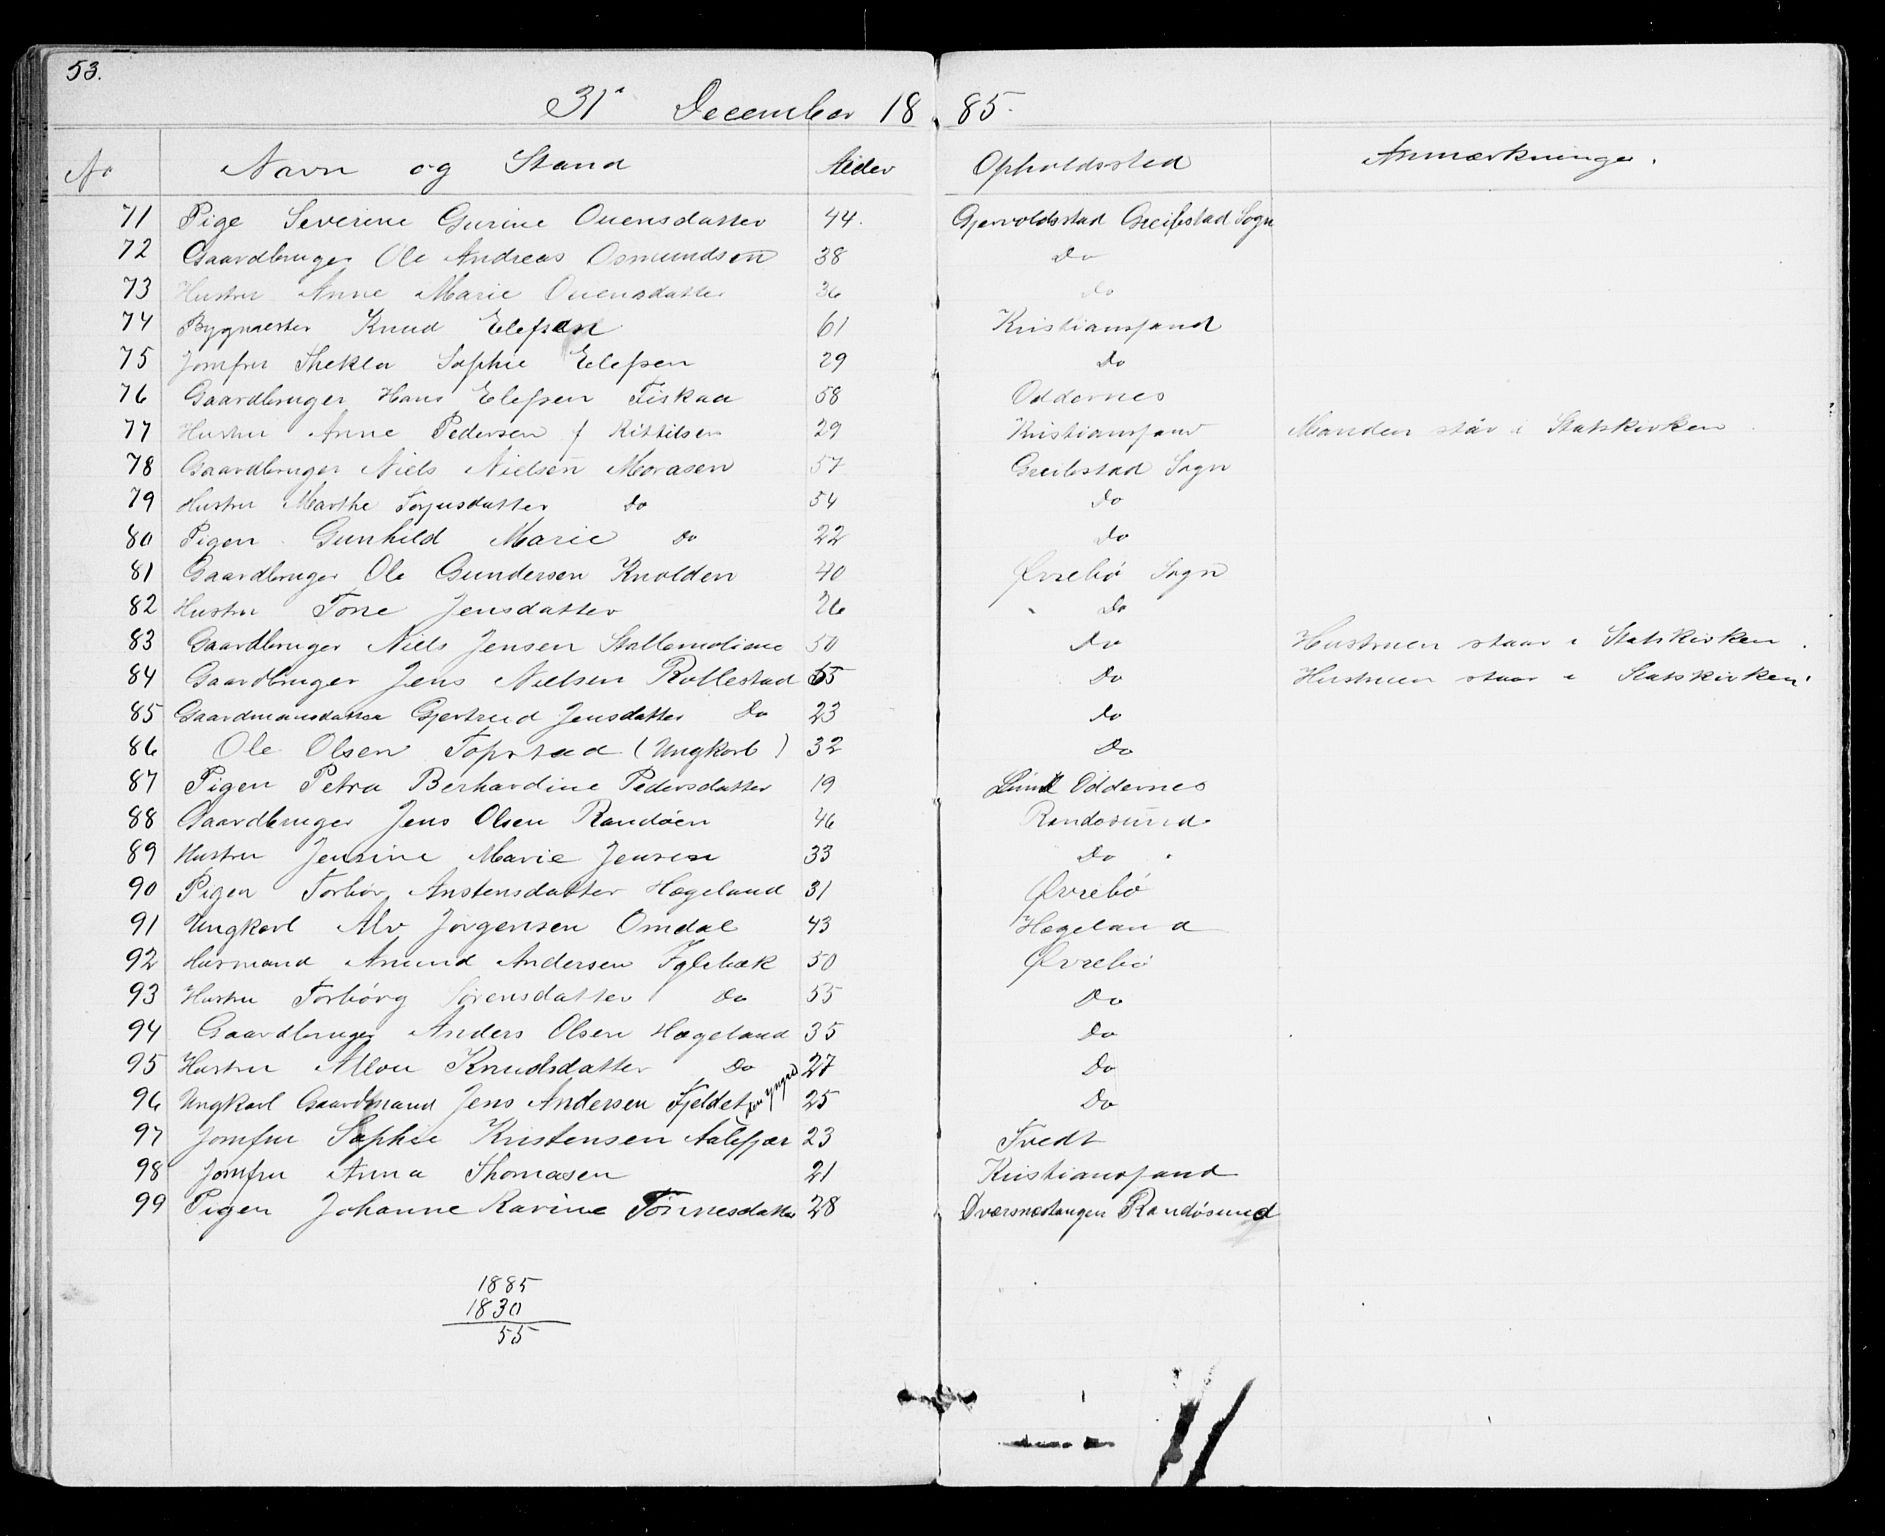 53.
31' December 1885.
No Navn og Stand Alder Opholdssted Anmærkninger.
71 Pige Severine Gurine Ouensdatter 44. Gjervoldsstad Greibestad Sogn
72 Gaardbruger Ole Andreas Osmundsen 38 Do
73 Hustru Anne Marie Ouensdatter 36 Do
74 Bygmester Knud Elefsen 61 Kristiansand
75 Jomfru Thekla Sophie Elefsen 29 Do
76 Gaardbruger Hans Elefsen Fiskaa 58 Oddernes
77 Hustru Anne Pedersen f Kittilsen 29 Kristiansand Manden står i Statskirken
78 Gaardbruger Niels Nielsen Morasen 57 Greibestad Sogn
79 Hustru Marthe Torjusdatter Do 54 Do
80 Pigen Gunhild Marie Do 22 Do
81 Gaardbruger Ole Gundersen Knolden 40 Øvrebø Sogn
82 Hustru Tone Jensdatter 26 Do
83 Gaardbruger Niels Jensen Stallemoliane 50 Do Hustruen staar i Statskirken.
84 Gaardbruger Jens Nielsen Rollestad 55 Do Hustruen staar i Statskirken.
85 Gaardmansdatter Gjertrud Jensdatter Do 23 Do
86 Ole Olsen Topstad (Ungkarl) 32 Do
87 Pigen Petra Berhardine Pedersdatter 19 Lund Oddernes
88 Gaardbruger Jens Olsen Randøen 46 Randøsund
89 Hustru Jensine Marie Jensen 33 Do
90 Pigen Torbør Anstensdatter Hægeland 31 Øvrebø
91 Ungkarl Alv Jørgensen Omdal 43 Hægeland
92 Husmand Anund Andersen Iglebæk 50 Øvrebø
93 Hustru Torbørg Sørensdatter Do 55 Do
94 Gaardbruger Anders Olsen Hægeland 35 Do
95 Hustru Allou Knudsdatter Do 27 Do
96 Ungkarl Gaardmand Jens Andersen Fjeldet den yngre 25 Do
97 Jomfru Sophie Kristensen Aalefjær 23 Tvedt
98 Jomfru Anna Thomasen 21 Kristiansand
99 Pigen Johanne Karine Tønnesdatter 28 Dværsnæstangen Randøsund
1885
1830
55